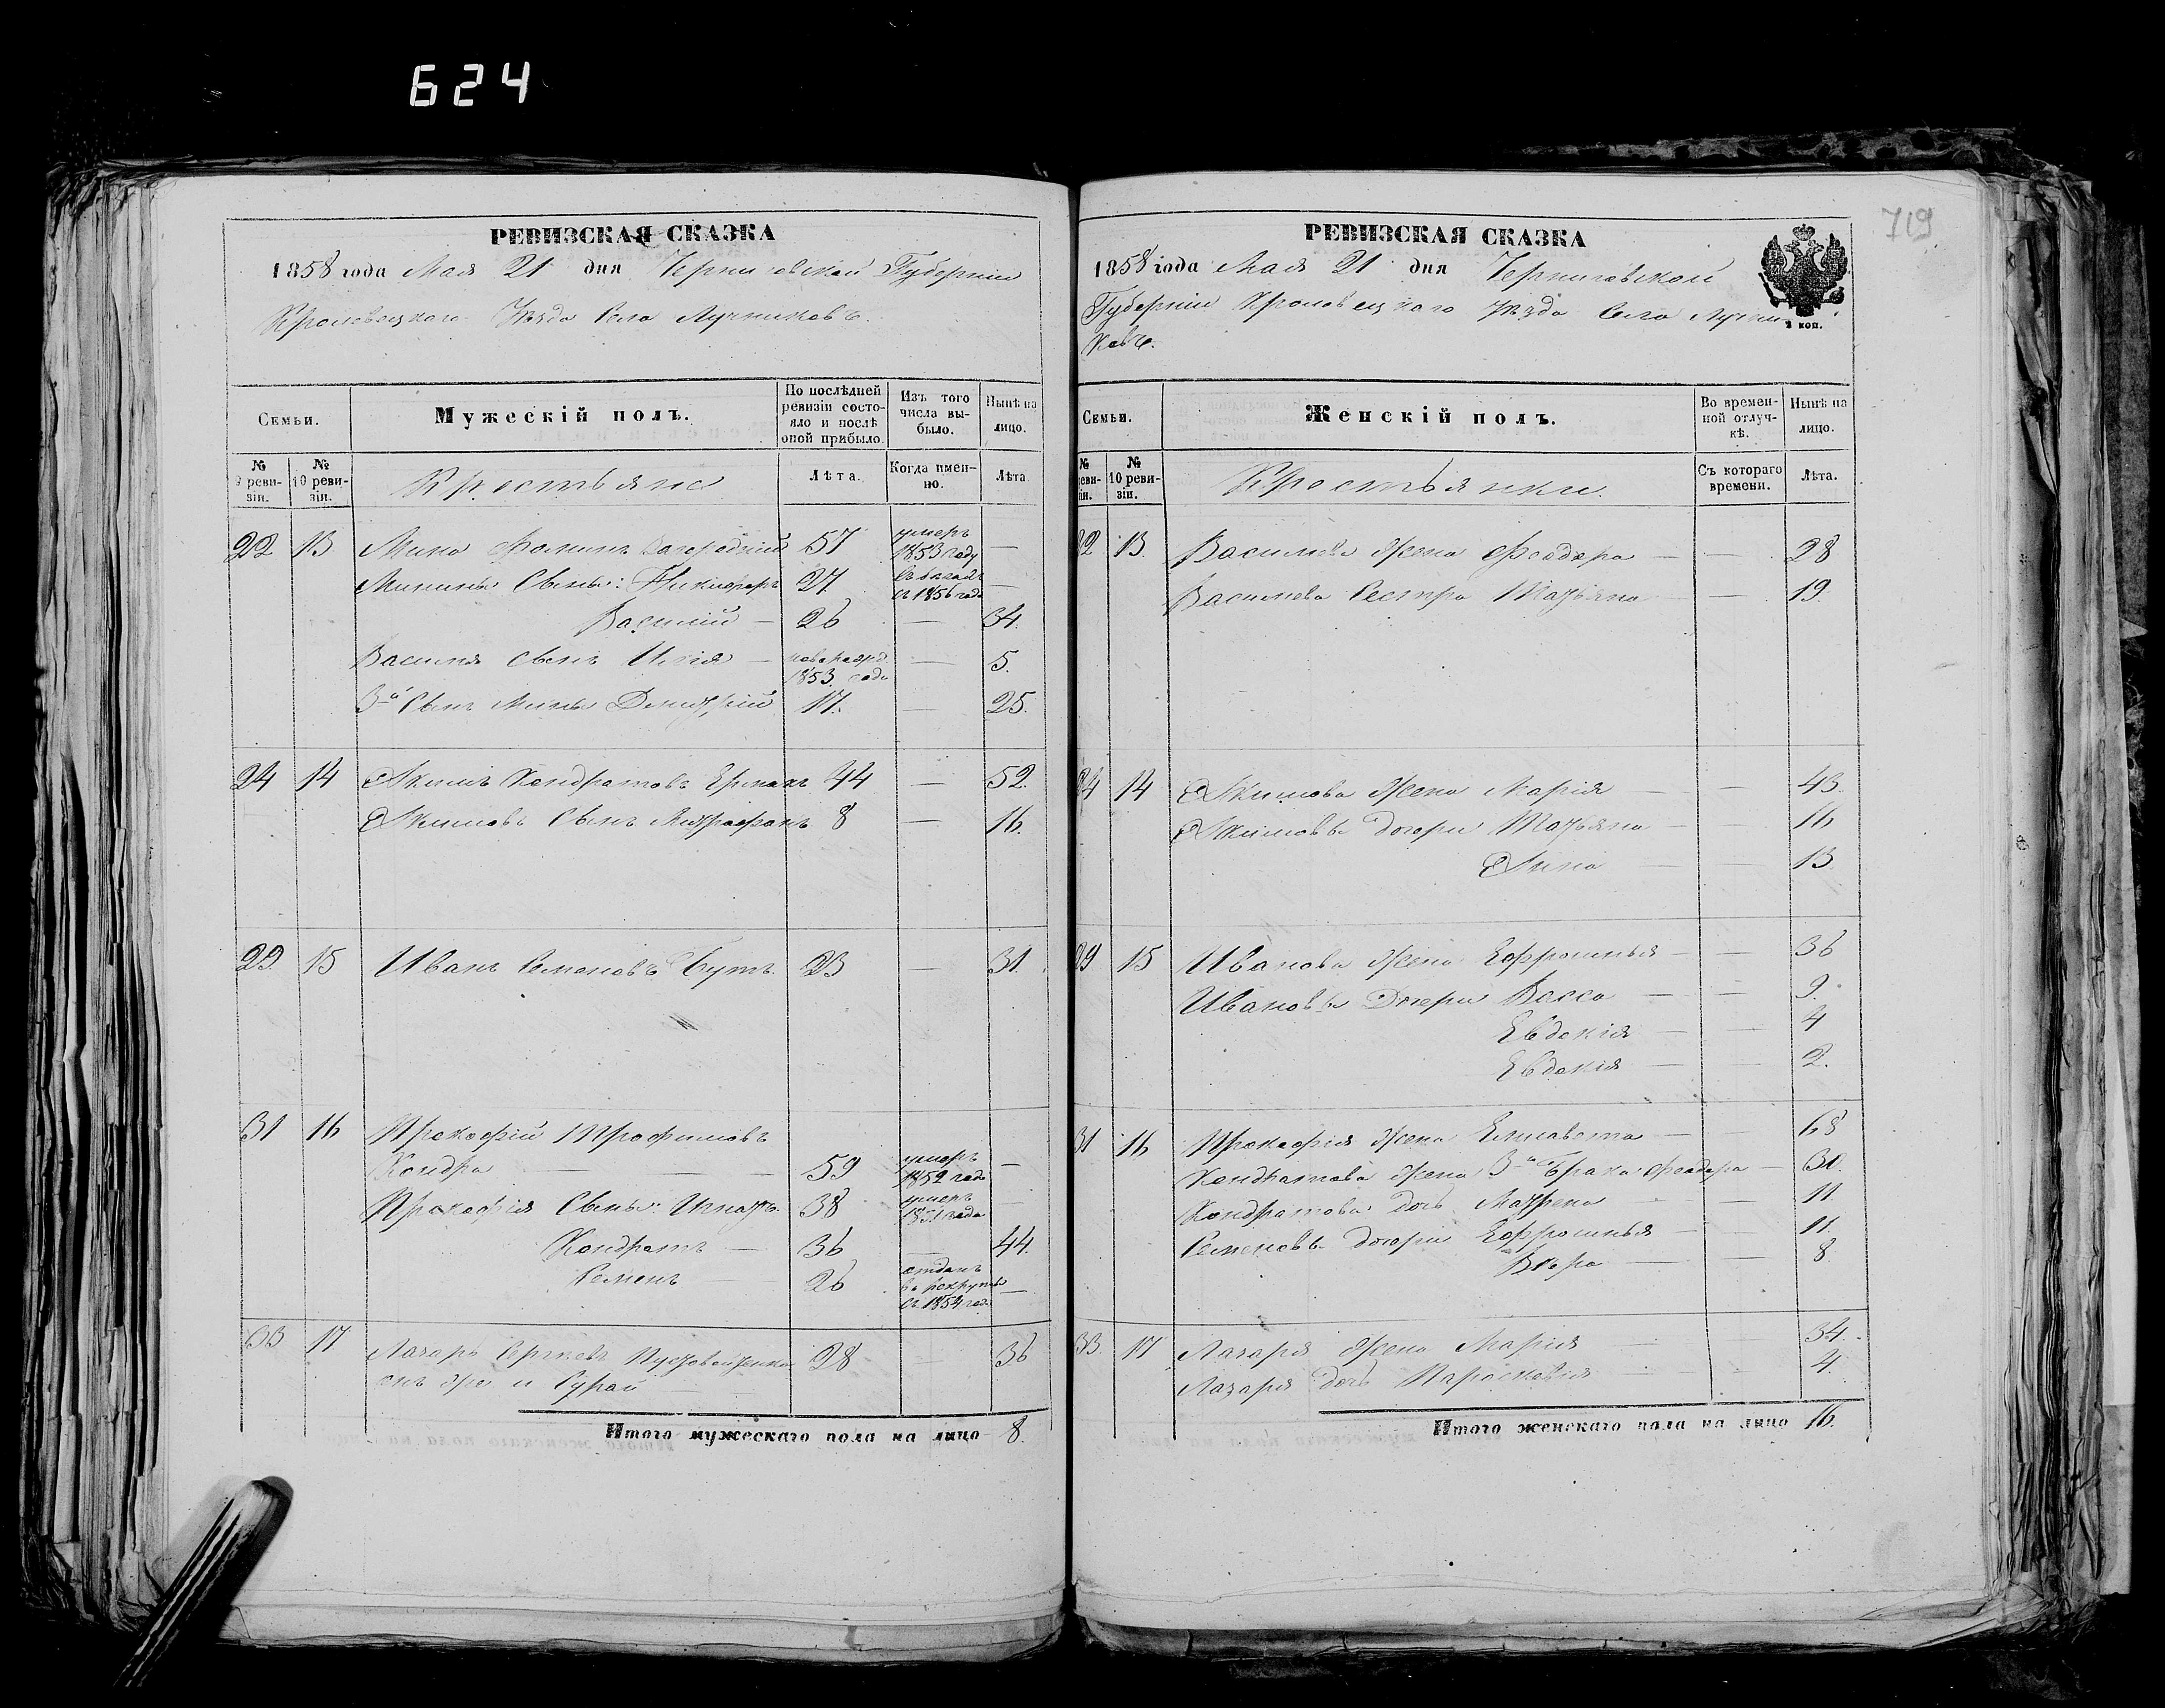 624
РЕВИЗСКАЯ СКАЗКА
1858 года Мая 21 дня Черниговской Губерніи
Кролевецкаго Уѣзда Села Лучниковъ.
Семьи.
Мужескій полъ.
По послѣдней ревизіи состояло и послѣ оной прибыло.
Изъ того числа выбыло.
Нынѣ на лицо.
№ 9 ревизіи.
№ 10 ревизіи.
Крестьяне
Лѣта.
Когда именно.
Лѣта
22 13 Мина Фоминъ Загородній 57 умеръ 1853 году —
Мининъ Сынъ: Никифоръ 27 съ 1856 года —
Василій — 26 — 34.
Василія сынъ Илія — новорожд. 1853 года — 5.
3й Сынъ Мины Димитрій 17. — 25.
24 14 Акимъ Кондратовъ Ермакъ 44 — 52.
Акимовъ Сынъ Митрофанъ 8 — 16.
29 15 Иванъ Семеновъ Бутъ. 23 — 31.
31 16 Прокофій Трофимовъ
Кондра — — 59 умеръ 1852 года —
Прокофія Сыны: Игнатъ. 38 умеръ 1851 года —
Кондратъ — 36 — 44.
Семенъ — 26 отданъ въ рекруты въ 1854 год. —
33 17 Лазарь Сергіевъ Пустовойтенко 28 — 36
онъ же и Сурай
Итого мужескаго пола на лицо 8.
719
РЕВИЗСКАЯ СКАЗКА
1858 года Мая 21 дня Черниговской
Губерніи Кролевецкаго Уѣзда Села Лучни-
ковъ.
2 коп.
Семьи.
Женскій полъ.
Во временной отлучкѣ.
Нынѣ на лицо.
№ реви-зіи.
№ 10 реви-зіи.
Крестьянки.
Съ котораго времени.
Лѣта.
22 13. Василіева Жена Феодора — — 28
Василіева Сестра Татьяна — — 19.
24 14 Акимова Жена Марія — — 43.
Акимовы дочери Татьяна — — 16
Анна — — 13.
29 15 Иванова Жена Ефросинья — — 36
Ивановы Дочери Васса — — 9.
Евдокія — — 4
Евдокія — — 2.
31 16 Прокофія Жена Елисавета — — 68
Кондратова жена 3го Брака Феодора — 30.
Кондратова дочь Матрена — — 11
Семеновы дочери Ефросинья — — 11.
Вѣра — — 8
33 17 Лазаря Жена Марія — — 34.
Лазаря дочь Параскевія — — 4.
Итого женскаго пола на лицо 16.